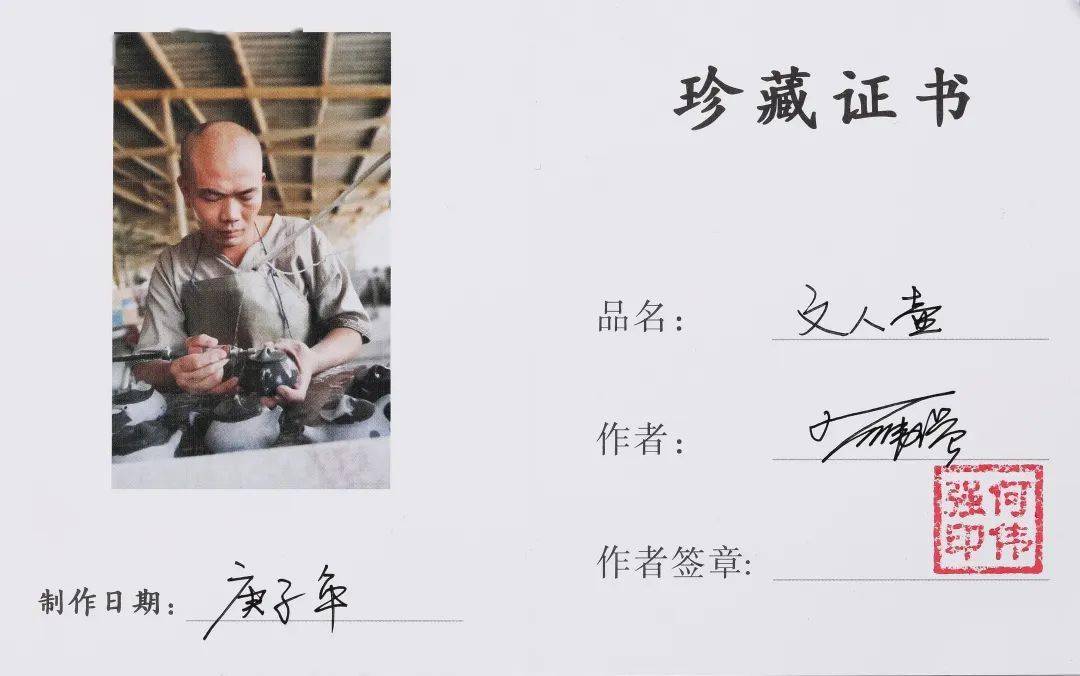 珍藏证书
品名: 文人壶
作者: 何伟强
作者签章: 何伟强印
制作日期: 庚子年